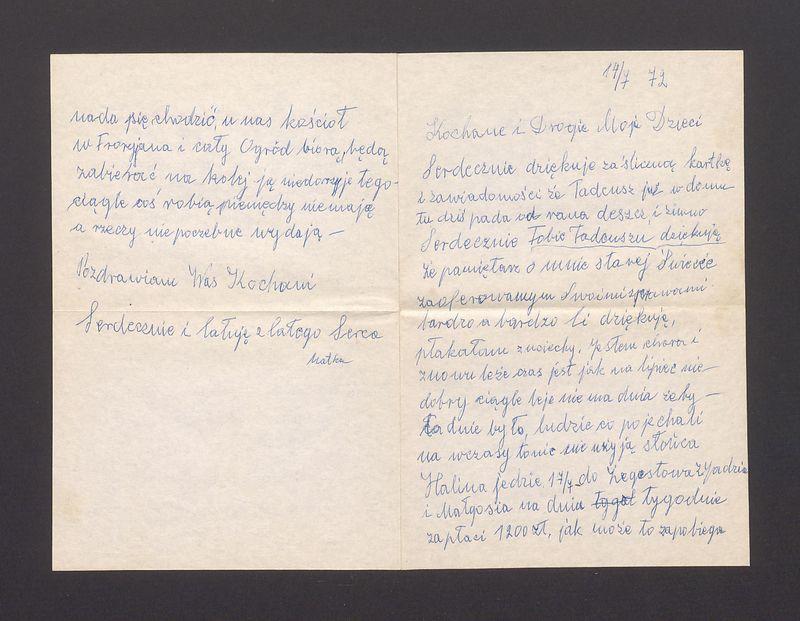 14/7 72
Kochane i Drogie Moje Dzieci
Serdecznie dziękuje za śliczną kartkę
i zawiadomości że Tadeusz już w domu
tu dziś pada od rana deszcz, i zimno
Serdecznie Tobie Tadeuszu dziękuję
że pamiętasz o mnie starej
Swoimi sprawami
bardzo a bardzo Ci dziękuję,
płakałam z uciechy, jestem chora i
znowu leże czas jest jak na lipiec nie
dobry ciągle leje nie ma dnia żeby
ładnie było, ludzie co pojechali
na wczasy to nic nie użyją słońca
Halina jedzie 17/7 do Żegestowa z Jadzią
i Małgosia na dnia tygodnie
zapłaci 1200 zł, jak może to zapobiega
nada się chodzić, u nas kościoł
w Froryjana i cały Ogród biorą, będą
zabierać na kolej ją tego
ciągle coś robią pieniędzy nie mają
a rzeczy niepoczebne wydają —
Pozdrawiam Was Kochani
Serdecznie i całuję z całego Serca
Matka